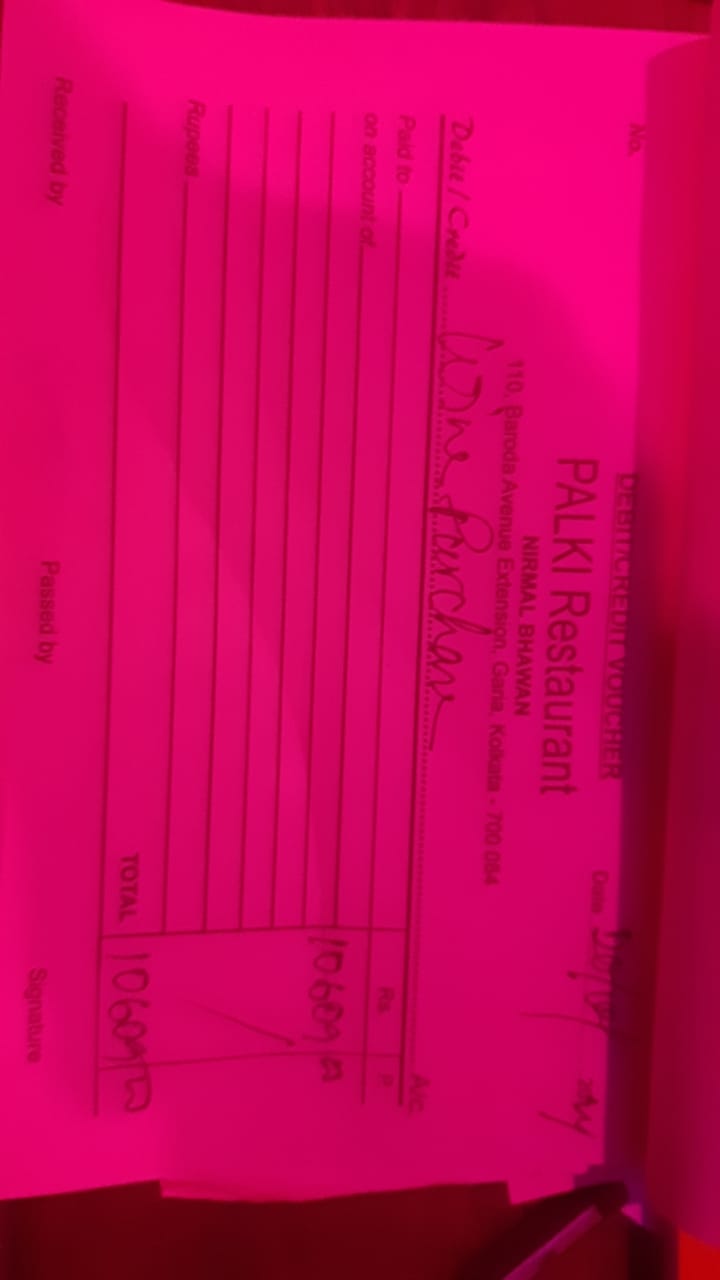 DEBIT/CREDIT VOUCHER
No.
Date
PALKI Restaurant
NIRMAL BHAWAN
110, Baroda Avenue Extension, Garia, Kolkata - 700 084
Debit / Credit Wine Purchase A/c.
Paid to
Rs. P.
on account of
Rupees
TOTAL
Received by Passed by Signature